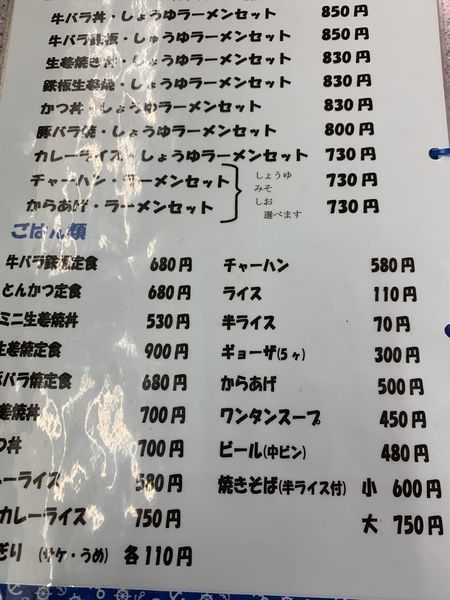 牛バラ丼・しょうゆラーメンセット 850円
牛バラ鉄板・しょうゆラーメンセット 850円
生姜焼き丼・しょうゆラーメンセット 830円
鉄板生姜焼・しょうゆラーメンセット 830円
かつ丼・しょうゆラーメンセット 830円
豚バラ焼・しょうゆラーメンセット 800円
カレーライス・しょうゆラーメンセット 730円
チャーハン・ラーメンセット 730円
からあげ・ラーメンセット 730円
しょうゆ
みそ
しお
選べます
ごはん類
牛バラ鉄板定食 680円
とんかつ定食 680円
ミニ生姜焼丼 530円
生姜焼定食 900円
豚バラ焼定食 680円
姜焼丼 700円
つ丼 700円
ーライス 580円
カレーライス 750円
ぎり (サケ・うめ) 各110円
チャーハン 580円
ライス 110円
半ライス 70円
ギョーザ(5ヶ) 300円
からあげ 500円
ワンタンスープ 450円
ビール(中ビン) 480円
焼きそば(半ライス付) 小 600円
大 750円